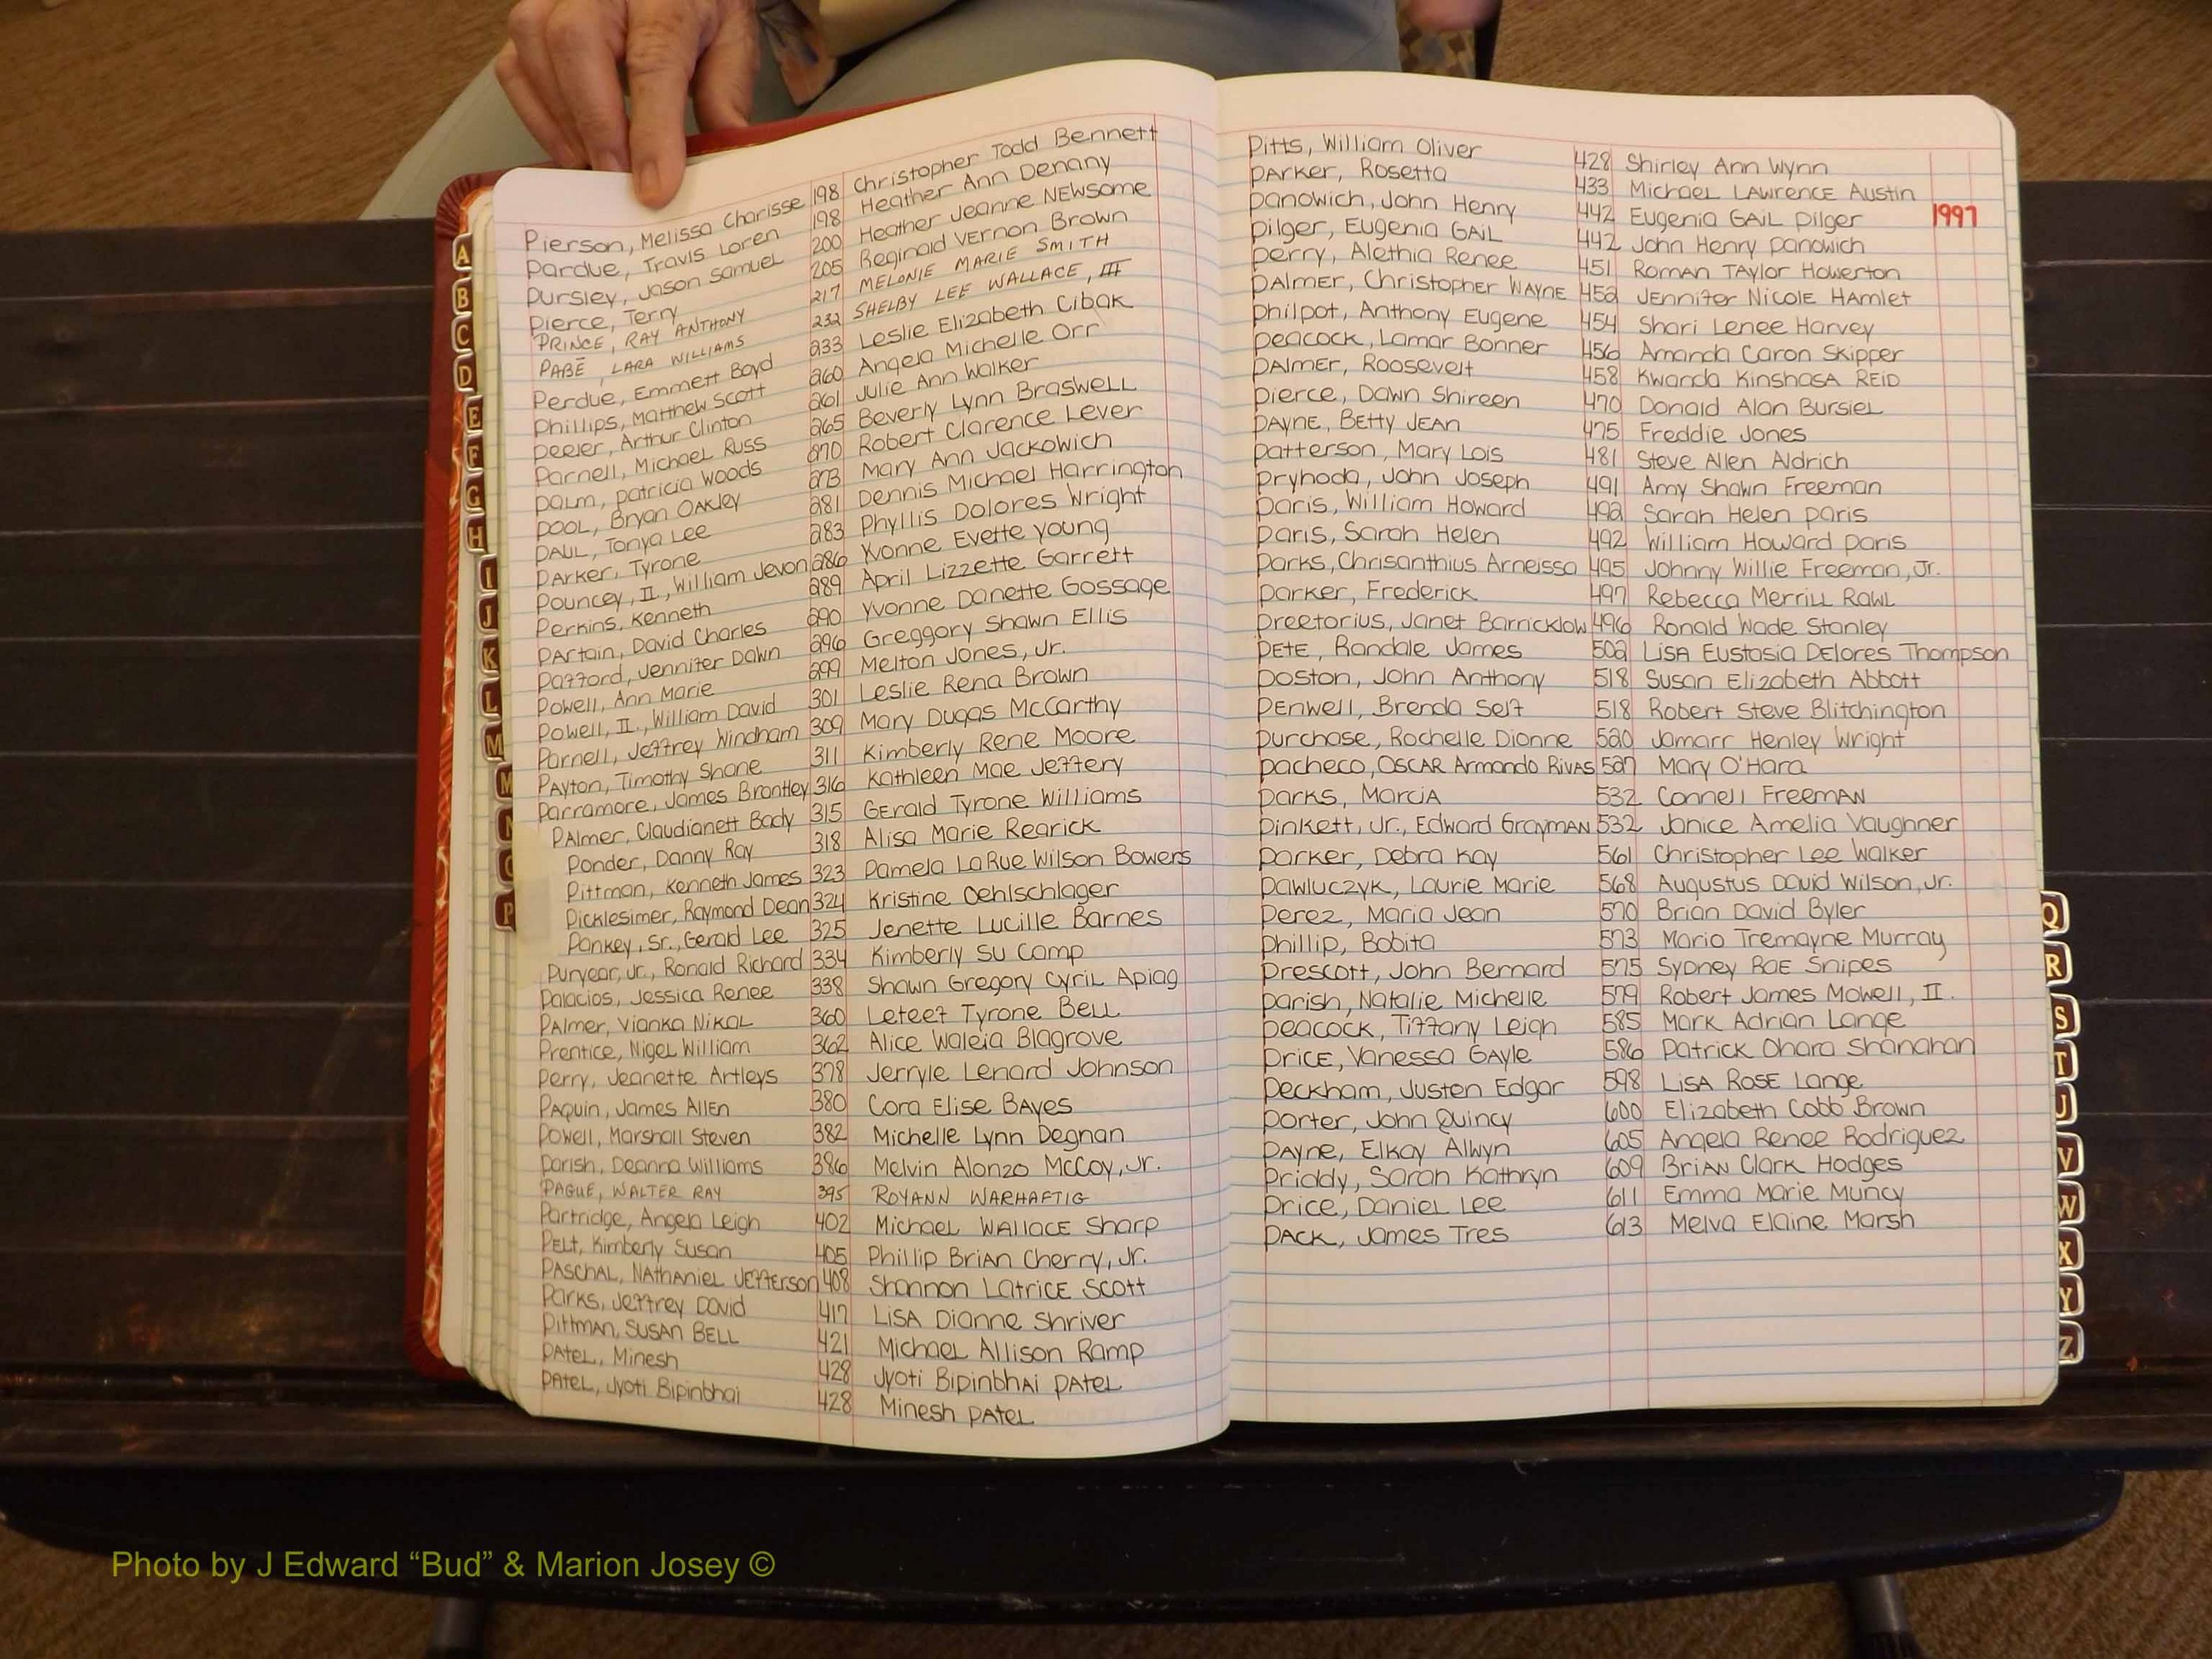 Pierson, Melissa Charisse 198 Christopher Todd Bennett
Pardue, Travis Loren 198 Heather Ann Denany
Pursley, Jason Samuel 200 Heather Jeanne Newsome
Pierce, Terry 205 Reginald Vernon Brown
PRINCE, RAY ANTHONY 217 MELONIE MARIE SMITH
PABĒ, LARA WILLIAMS 232 SHELBY LEE WALLACE, III
Perdue, Emmett Boyd 233 Leslie Elizabeth Cibak
Phillips, Matthew Scott 260 Angela Michelle Orr
Peeler, Arthur Clinton 261 Julie Ann Walker
Parnell, Michael Russ 265 Beverly Lynn Braswell
Palm, Patricia Woods 270 Robert Clarence Lever
Pool, Bryan Oakley 273 Mary Ann Jackowich
Paul, Tonya Lee 281 Dennis Michael Harrington
Parker, Tyrone 283 Phyllis Dolores Wright
Pouncey, II., William Jevon 286 Yvonne Evette Young
Perkins, Kenneth 289 April Lizzette Garrett
Partain, David Charles 290 Yvonne Danette Gossage
Pafford, Jennifer Dawn 296 Greggory Shawn Ellis
Powell, Ann Marie 299 Melton Jones, Jr.
Powell, II., William David 301 Leslie Rena Brown
Parnell, Jeffrey Windham 309 Mary Dugas McCarthy
Payton, Timothy Shane 311 Kimberly Rene Moore
Parramore, James Brantley 316 Kathleen Mae Jeffery
Palmer, Claudianett Bady 315 Gerald Tyrone Williams
Ponder, Danny Ray 318 Alisa Marie Rearick
Pittman, Kenneth James 323 Pamela LaRue Wilson Bowers
Picklesimer, Raymond Dean 324 Kristine Oehlschlager
Pankey, Sr., Gerald Lee 325 Jenette Lucille Barnes
Puryear, Jr., Ronald Richard 334 Kimberly Su Camp
Palacios, Jessica Renee 338 Shawn Gregory Cyril Apiag
Palmer, Vianka Nikol 360 Leteef Tyrone Bell
Prentice, Nigel William 362 Alice Waleia Blagrove
Perry, Jeanette Artleys 378 Jerryle Lenard Johnson
Paquin, James Allen 380 Cora Elise Bayes
Powell, Marshall Steven 382 Michelle Lynn Degnan
Parish, Deanna Williams 386 Melvin Alonzo McCoy, Jr.
PAGUE, WALTER RAY 395 ROYANN WARHAFTIG
Partridge, Angela Leigh 402 Michael Wallace Sharp
Pelt, Kimberly Susan 405 Phillip Brian Cherry, Jr.
Paschal, Nathaniel Jefferson 408 Shannon Latrice Scott
Parks, Jeffrey David 417 Lisa Dianne Shriver
Pittman, Susan Bell 421 Michael Allison Ramp
Patel, Minesh 428 Jyoti Bipinbhai Patel
Patel, Jyoti Bipinbhai 428 Minesh Patel
Pitts, William Oliver 428 Shirley Ann Wynn
Parker, Rosetta 433 Michael Lawrence Austin
Panowich, John Henry 442 Eugenia Gail Pilger 1997
Pilger, Eugenia Gail 442 John Henry Panowich
Perry, Alethia Renee 451 Roman Taylor Howerton
Palmer, Christopher Wayne 452 Jennifer Nicole Hamlet
Philpot, Anthony Eugene 454 Shari Lenee Harvey
Peacock, Lamar Bonner 456 Amanda Caron Skipper
Palmer, Roosevelt 458 Kwanda Kinshasa Reid
Pierce, Dawn Shireen 470 Donald Alan Bursiel
Payne, Betty Jean 475 Freddie Jones
Patterson, Mary Lois 481 Steve Allen Aldrich
Pryhoda, John Joseph 491 Amy Shawn Freeman
Paris, William Howard 492 Sarah Helen Paris
Paris, Sarah Helen 492 William Howard Paris
Parks, Chrisanthius Arneissa 495 Johnny Willie Freeman, Jr.
Parker, Frederick 497 Rebecca Merrill Rawl
Preetorius, Janet Barricklow 496 Ronald Wade Stanley
Pete, Randale James 502 Lisa Eustasia Delores Thompson
Poston, John Anthony 518 Susan Elizabeth Abbott
Penwell, Brenda Self 518 Robert Steve Blitchington
Purchase, Rochelle Dionne 520 Jamarr Henley Wright
Pacheco, Oscar Armando Rivas 527 Mary O'Hara
Parks, Marcia 532 Connell Freeman
Pinkett, Jr., Edward Grayman 532 Janice Amelia Vaughner
Parker, Debra Kay 561 Christopher Lee Walker
Pawluczyk, Laurie Marie 568 Augustus David Wilson, Jr.
Perez, Maria Jean 570 Brian David Byler
Phillip, Bobita 573 Mario Tremayne Murray
Prescott, John Bernard 575 Sydney Rae Snipes
Parish, Natalie Michelle 579 Robert James Mowell, II.
Peacock, Tiffany Leigh 585 Mark Adrian Lange
Price, Vanessa Gayle 586 Patrick Ohara Shanahan
Peckham, Justen Edgar 598 Lisa Rose Lange
Porter, John Quincy 600 Elizabeth Cobb Brown
Payne, Elkay Alwyn 605 Angela Renee Rodriguez
Priddy, Sarah Kathryn 609 Brian Clark Hodges
Price, Daniel Lee 611 Emma Marie Muncy
Pack, James Tres 613 Melva Elaine Marsh
A
B
C
D
E
F
G
H
I
J
K
L
M
M
N
O
P
Q
R
S
T
U
V
W
X
Y
Z
Photo by J Edward “Bud” & Marion Josey ©